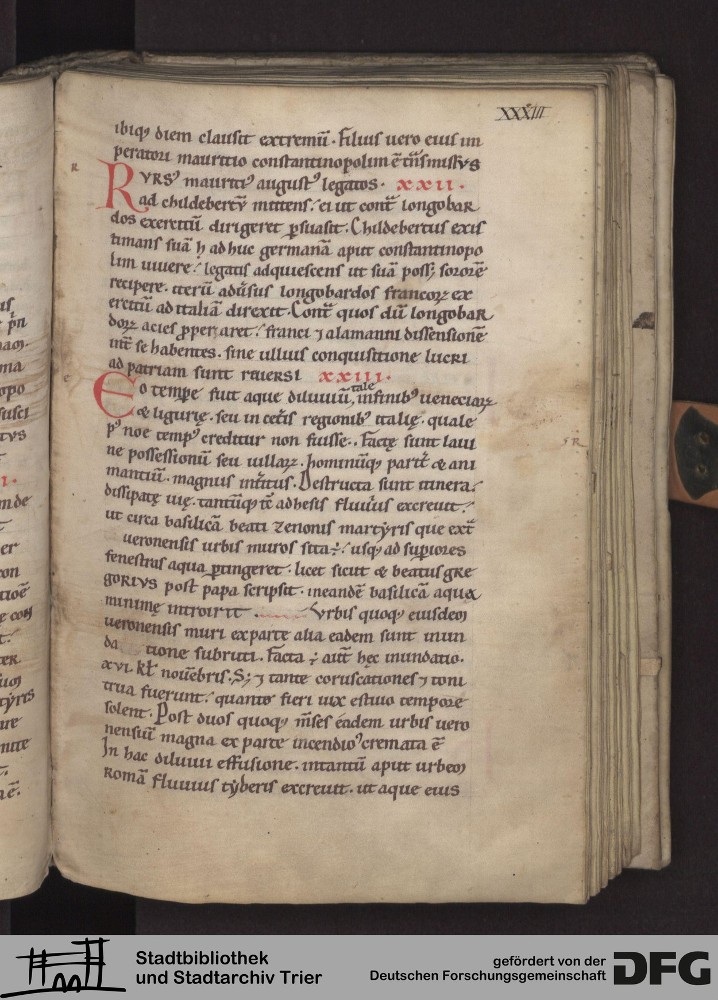 XXXIII
ibiq; diem clausit extremū. Filius uero eius im
peratori mauritio constantinopolim ē tn̄smissus
Rursꝰ mauritiꝰ augustꝰ legatos. xxii.
ad childebertū mittens, ei ut cont̄ longobar
dos exercitū dirigeret ꝑsuasit. Childebertus exis
timans suā h adhuc germanā aput constantinopo
lim uiuere, legatis adquiescens ut suā poss; sororē
recipere. iterū adūsus longobardos francoꝝ ex
ercitū ad italiā direxit. Cont̄ quos dū longobar
doꝝ acies ꝓperaret, franci ⁊ alamanni dissensionē
int̄ se habentes. sine ullius conquisitione lucri
ad patriam sunt reuersi xxiii.
Eo tempe fuit aque diluuiū tale, in finibꝰ ueneciaꝝ
& ligurię. seu in cet̄is regionibꝰ italię. quale
pꝰ noe tempꝰ creditur non fuisse. Factę sunt laui
ne possessionū seu uillaꝝ. hominūq; part̄ & ani
mantiū. magnus int̄itus. Destructa sunt itinera.
dissipatę uię. tantūq; tc̄ adhesis fluuius excreuit.
ut circa basilicā beati zenonis martyris que ext̄
ueronensis urbis muros sita ÷, usq; ad sup̄iores
fenestras aqua ꝑtingeret. licet sicut & beatus gre
gorius post papa scripsit. in eandē basilicā aqua
minimę introirit. Urbis quoq; eiusdem
ueronensis muri ex parte alia eadem sunt inun
da tione subruti. Facta ÷ aut̄ hęc inundatio.
xvi. kl̄ nouēbris. S; ⁊ tante coruscationes ⁊ toni
trua fuerunt, quanto fieri uix estiuo tempore
solent. Post duos quoq; m̄ses eadem urbis uero
nensiū magna ex parte incendio cremata ē
In hac diluuii effusione. in tantū aput urbem
Romā fluuius tyberis excreuit. ut aque eius
Stadtbibliothek
und Stadtarchiv Trier
gefördert von der
Deutschen Forschungsgemeinschaft
DFG